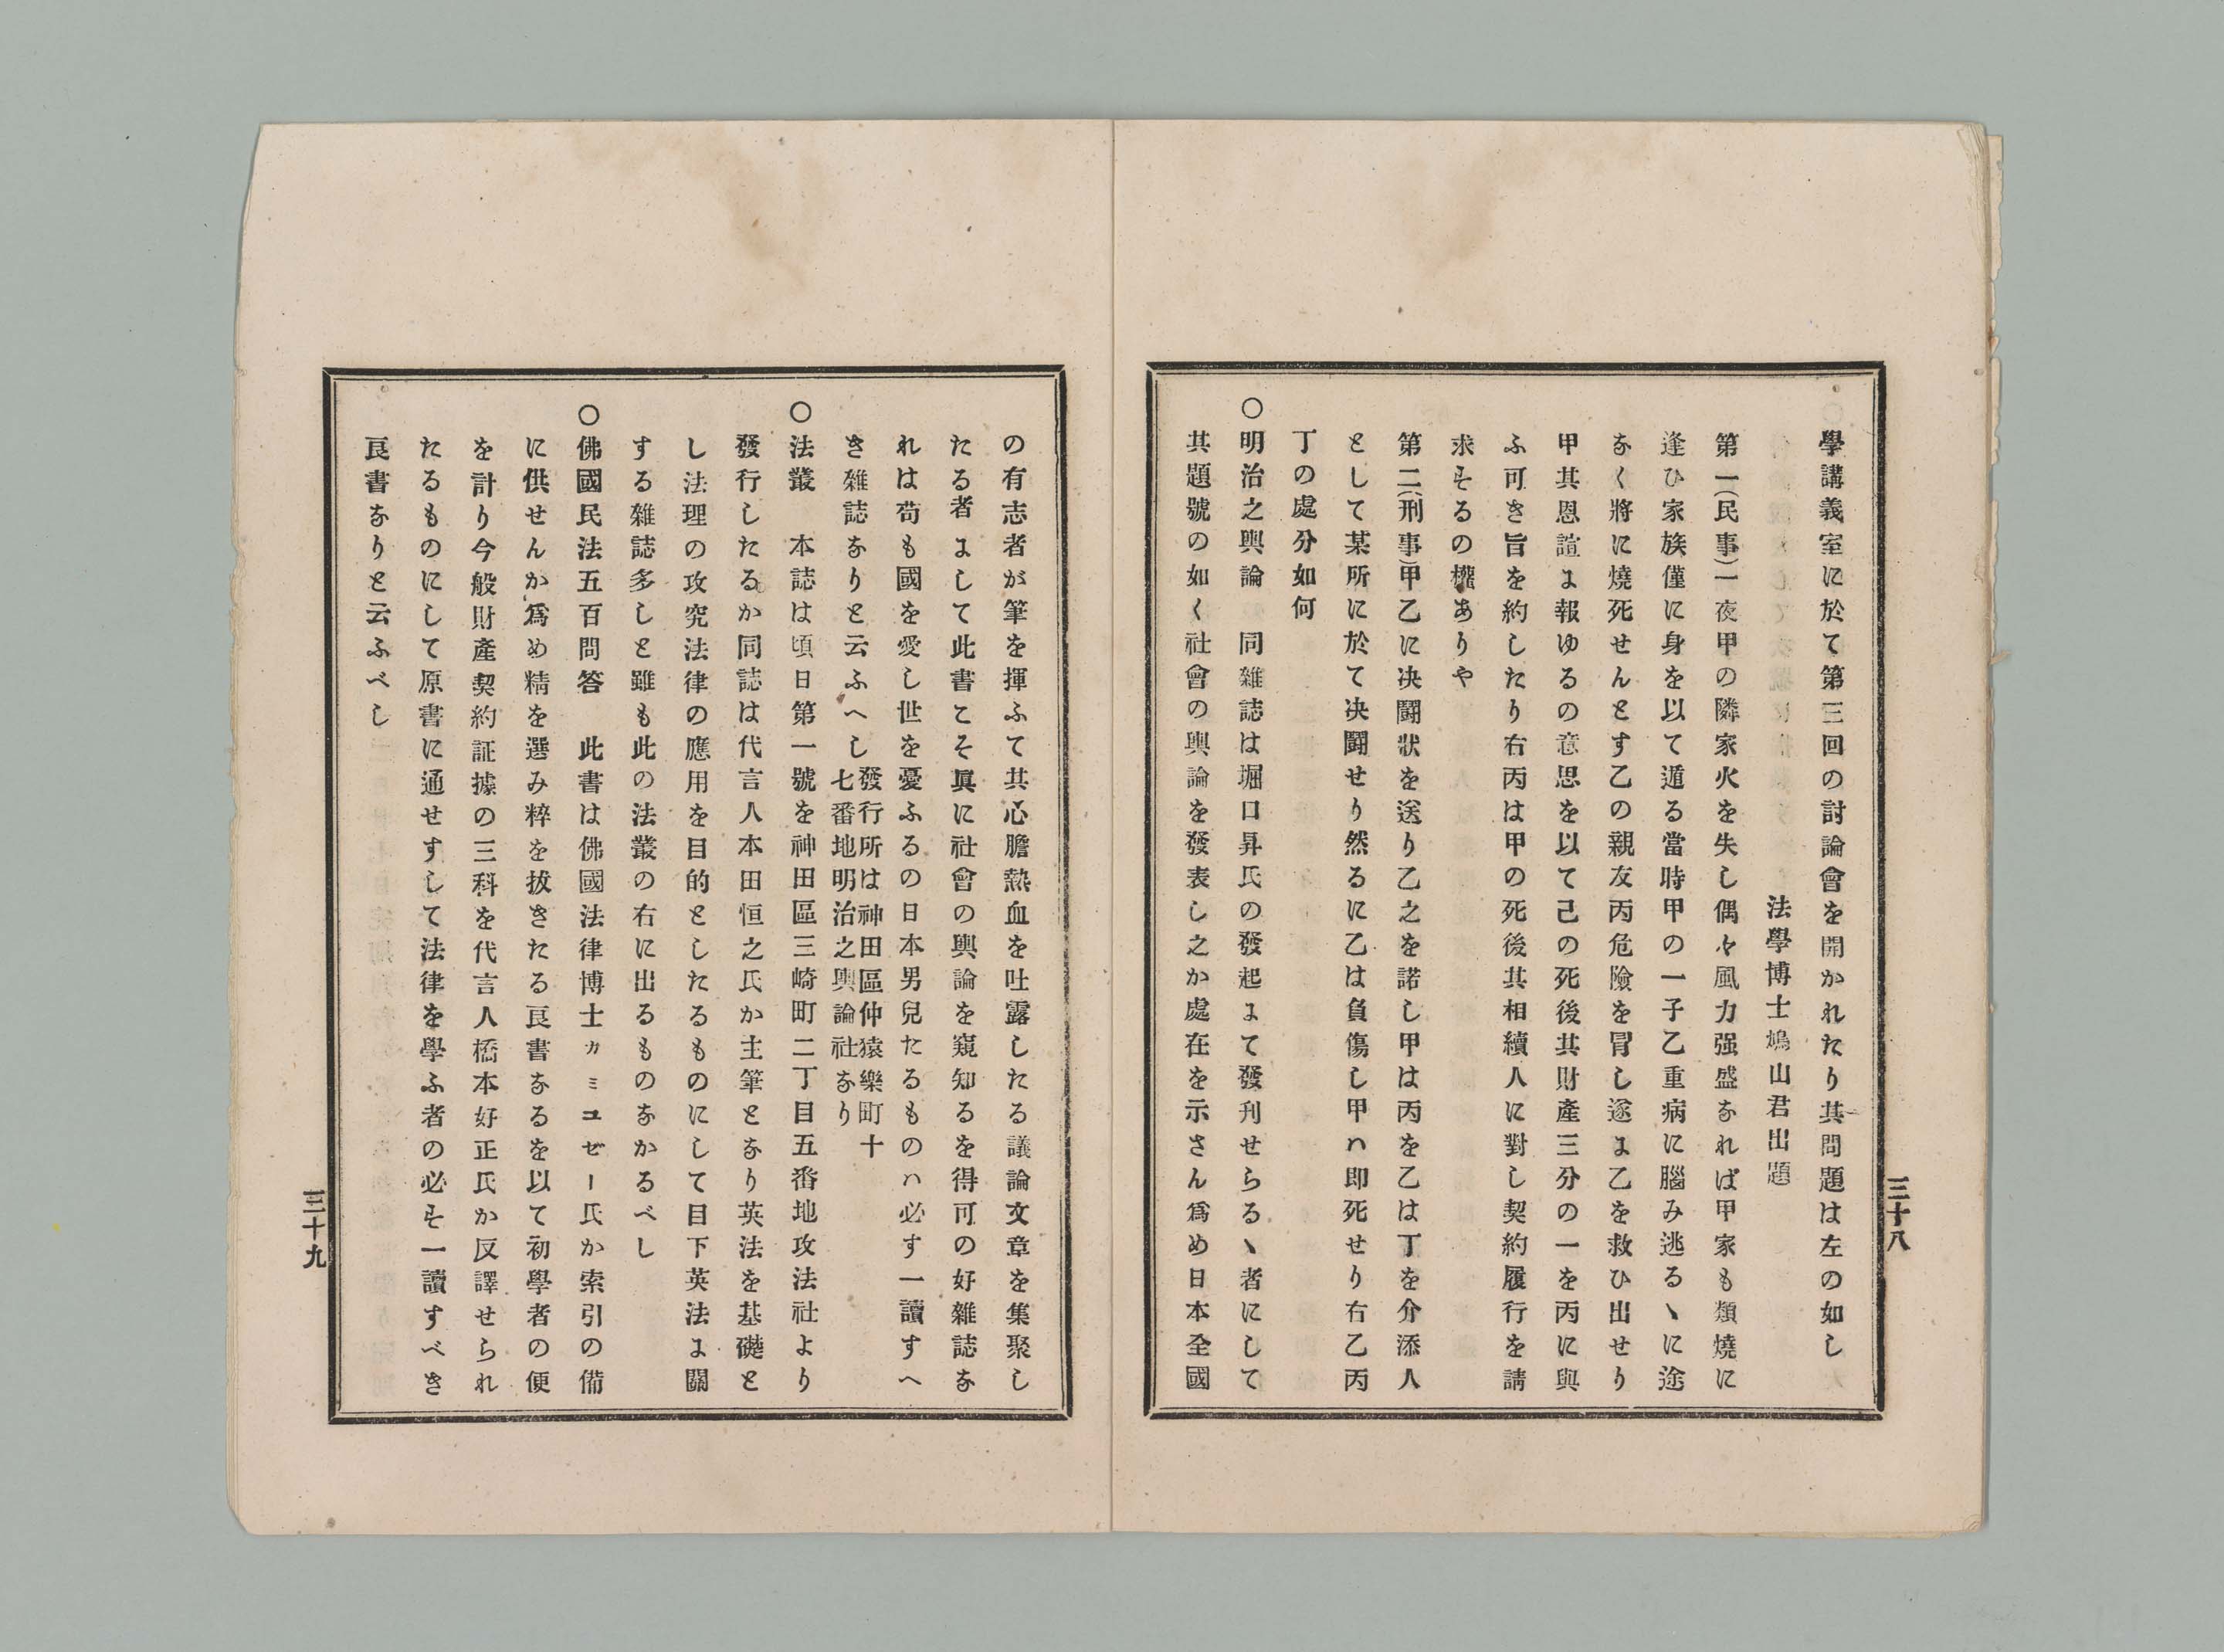 學講義室に於て第三回の討論會を開かれたり其問題は左の如し
法學博士鳩山君出題
第一(民事)一夜甲の隣家火を失し偶々風力强盛なれば甲家も類燒に
逢ひ家族僅に身を以て遁る當時甲の一子乙重病に腦み逃るヽに途
なく將に燒死せんとす乙の親友丙危險を冒し遂に乙を救ひ出せり
甲其恩誼に報ゆるの意思を以て己の死後其財產三分の一を丙に與
ふ可き旨を約したり右丙は甲の死後其相續人に對し契約履行を請
求するの權ありや
第二(刑事)甲乙に决鬪狀を送り乙之を諾し甲は丙を乙は丁を介添人
として某所に於て决鬪せり然るに乙は負傷し甲ハ即死せり右乙丙
丁の處分如何
○明治之輿論　同雜誌は堀口昇氏の發起にて發刋せらるヽ者にして
其題號の如く社會の輿論を發表し之か處在を示さん爲め日本全國
三十八
の有志者が筆を揮ふて其心膽熱血を吐露したる議論文章を集聚し
たる者にして此書こそ眞に社會の輿論を窺知るを得可の好雜誌な
れは苟も國を愛し世を憂ふるの日本男兒たるものハ必す一讀すへ
き雜誌なりと云ふへし發行所は神田區仲猿樂町十
七番地明治之輿論社なり
○法叢　本誌は頃日第一號を神田區三崎町二丁目五番地攻法社より
發行したるか同誌は代言人本田恒之氏か主筆となり英法を基礎と
し法理の攻究法律の應用を目的としたるものにして目下英法に關
する雜誌多しと雖も此の法叢の右に出るものなかるべし
○佛國民法五百問答　此書は佛國法律博士カミユゼー氏か索引の備
に供せんか爲め精を選み粹を拔きたる良書なるを以て初學者の便
を計り今般財產契約証據の三科を代言人橋本好正氏か反譯せられ
たるものにして原書に通せすして法律を學ふ者の必す一讀すべき
良書なりと云ふべし
三十九